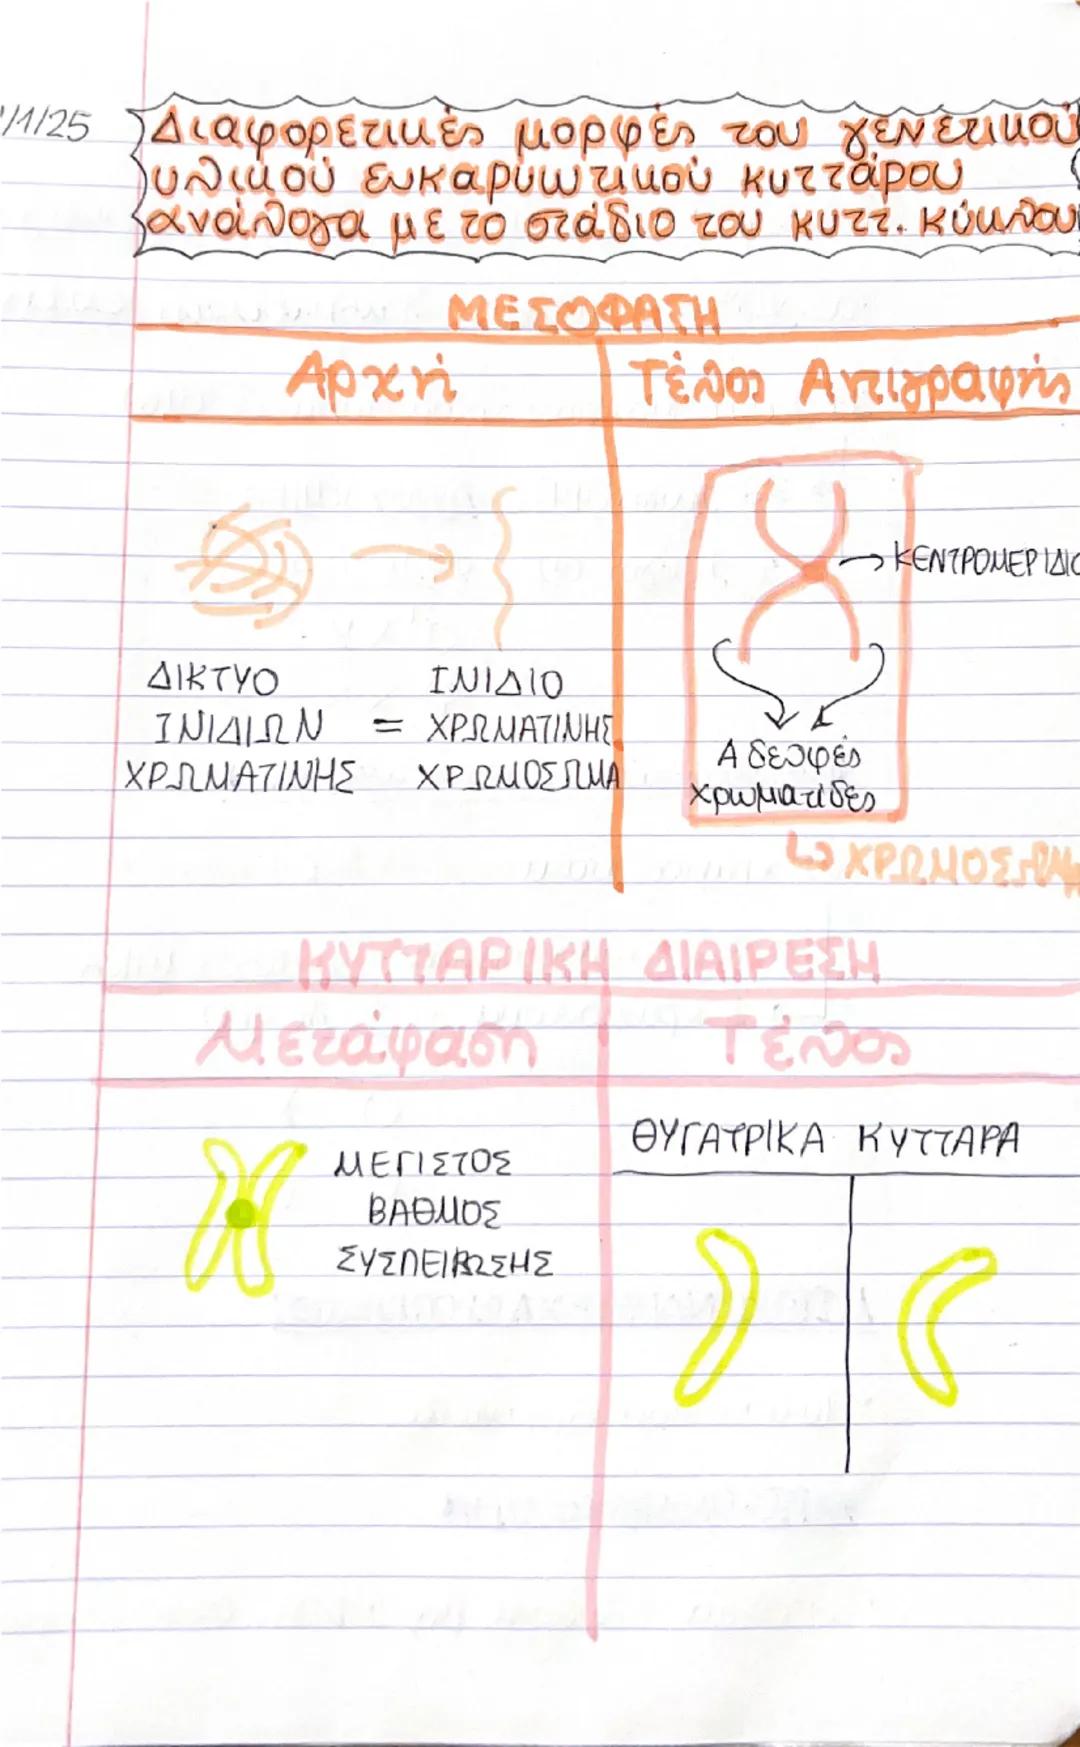 /1/25
Διαφορετικές μορφές του γενετικού
υλικού ευκαρυωτικού κυττάρου
ανάλογα με το στάδιο του κυττ. κύκλου
ΜΕΣΟΦΑΣΗ
Αρχή
Τέλος Αντιγραφής
ΚΕΝΤΡΟΜΕΡΙΔΙΟ
ΔΙΚΤΥΟ
ΙΝΙΔΙΩΝ
ΧΡΩΜΑΤΙΝΗΣ
=
ΙΝΙΔΙΟ
ΧΡΩΜΑΤΙΝΗΣ
ΧΡΩΜΟΣΩΜΑ
Αδελφές
χρωματίδες
ΧΡΩΜΟΣΩΜΑ
ΚΥΤΤΑΡΙΚΗ ΔΙΑΙΡΕΣΗ
Μετάφαση
Τέλος
ΜΕΓΙΣΤΟΣ
ΒΑΘΜΟΣ
ΣΥΣΠΕΙΡΩΣΗΣ
ΘΥΓΑΤΡΙΚΑ ΚΥΤΤΑΡΑ